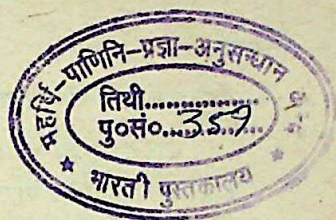 महर्षि-पाणिनि-प्रज्ञा-अनुसन्धान
तिथी..................
पु०सं०....359....
★ भारती पुस्तकालय ★